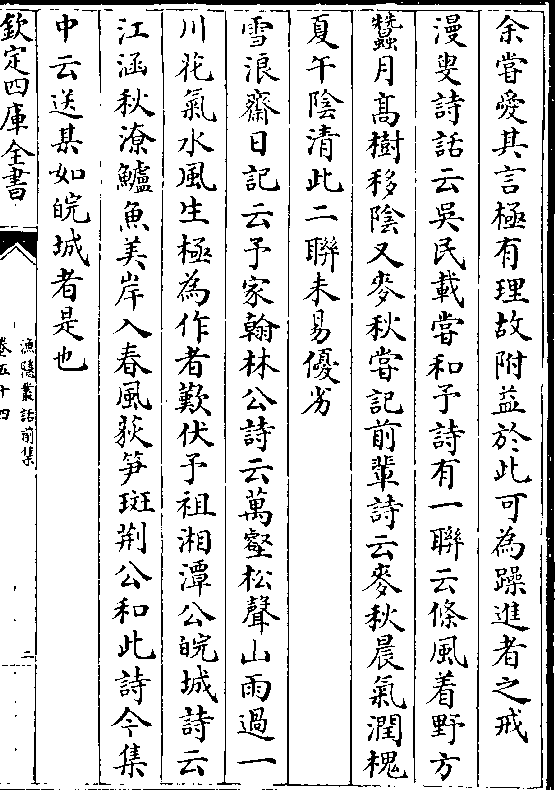 余嘗愛其言極有理故附益於此可為躁進者之戒
漫叟詩話云吳民載嘗和予詩有一聯云條風着野方
蠶月髙樹移陰又麥秋嘗記前輩詩云麥秋晨氣潤槐
夏午陰清此二聯未易優劣
雪浪齋日記云予家翰林公詩云萬壑松聲山雨過一
川花氣水風生極為作者歎伏予祖湘潭公皖城詩云
江涵秋潦鱸魚美岸入春風荻笋斑荆公和此詩今集
中云送某如皖城者是也
欽定四庫全書
漁隱叢話前集
卷五十四
二